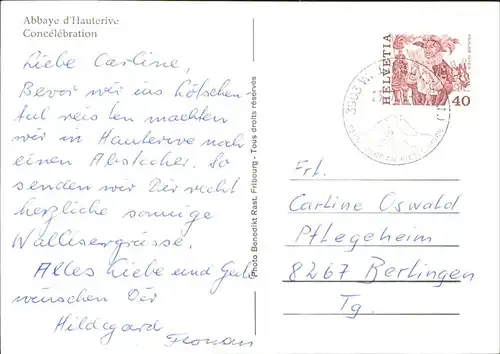 Abbaye d'Hauterive
Concélébration
Liebe Carline,
Bevor wir ins Lötschen-
tal reisten machten
wir in Hauterive noch
einen Abstecher. So
senden wir Dir recht
herzliche sonnige
Wallisergrüsse.
Alles Liebe und Gute
wünschen Dir
Hildegard
Florian
Photo Benedikt Rast, Fribourg - Tous droits réservés
HELVETIA
40
3903
Frl.
Carline Oswald
Pflegeheim
8267 Berlingen
Tg.